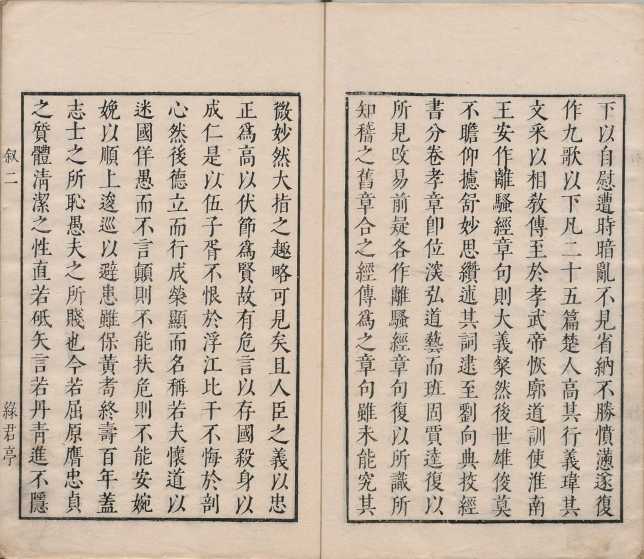 下以自慰遭時暗亂不見省納不勝憤懣遂復
作九歌以下凡二十五篇楚人高其行義瑋其
文采以相敎傳至於孝武帝恢廓道訓使淮南
王安作離騷經章句則大義粲然後世雄俊莫
不瞻仰攄舒妙思纘述其詞逮至劉向典挍經
書分卷孝章卽位深弘道藝而班固賈逵復以
所見改易前疑各作離騷經章句復以所識所
知稽之舊章合之經傳爲之章句雖未能究其
微妙然大指之趣略可見矣且人臣之義以忠
正爲高以伏節爲賢故有危言以存國殺身以
成仁是以伍子胥不恨於浮江比干不悔於剖
心然後德立而行成榮顯而名稱若夫懷道以
迷國佯愚而不言顚則不能扶危則不能安婉
娩以順上逡巡以避患雖保黃耇終壽百年蓋
志士之所恥愚夫之所賤也今若屈原膺忠貞
之質體清潔之性直若砥矢言若丹青進不隱
叙二
綠君亭